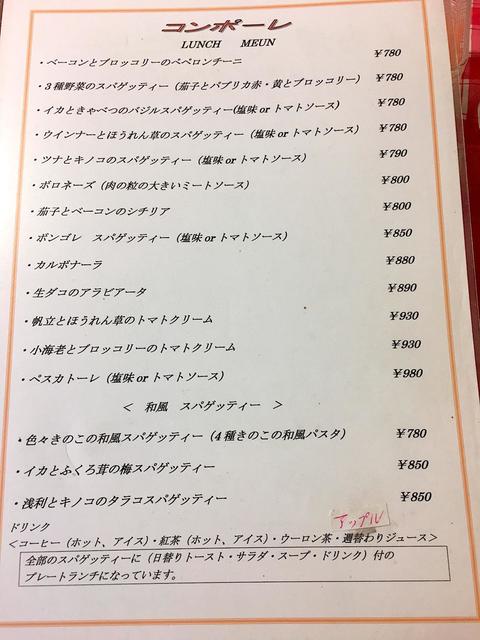 コンポーレ
LUNCH MEUN
・ベーコンとブロッコリーのペペロンチーニ ¥780
・3種野菜のスパゲッティー（茄子とパプリカ赤・黄とブロッコリー） ¥780
・イカときゃべつのバジルスパゲッティー(塩味 or トマトソース) ¥780
・ウインナーとほうれん草のスパゲッティー（塩味 or トマトソース） ¥780
・ツナとキノコのスパゲッティー（塩味 or トマトソース） ¥790
・ボロネーズ（肉の粒の大きいミートソース） ¥800
・茄子とベーコンのシチリア ¥800
・ボンゴレ スパゲッティー（塩味 or トマトソース） ¥850
・カルボナーラ ¥880
・生ダコのアラビアータ ¥890
・帆立とほうれん草のトマトクリーム ¥930
・小海老とブロッコリーのトマトクリーム ¥930
・ペスカトーレ（塩味 or トマトソース） ¥980
＜ 和風 スパゲッティー ＞
・色々きのこの和風スパゲッティー（4種きのこの和風パスタ） ¥780
・イカとふくろ茸の梅スパゲッティー ¥850
・浅利とキノコのタラコスパゲッティー ¥850
アップル
ドリンク
＜コーヒー（ホット、アイス）・紅茶（ホット、アイス）・ウーロン茶・週替わりジュース＞
全部のスパゲッティーに（日替りトースト・サラダ・スープ・ドリンク）付の
プレートランチになっています。